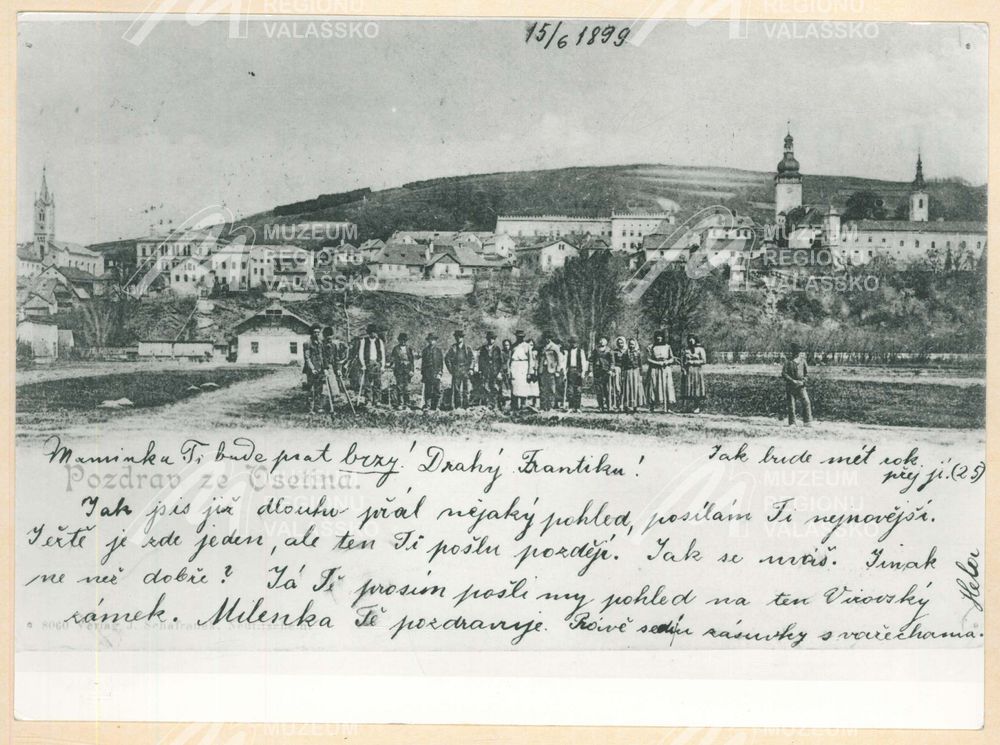 MUZEUM REGIONU VALAŠSKO
15/6 1899
Maminka Ti bude psat brzy! Drahý Frantíku!
Jak bude mét rok
přej jí. (25)
Pozdrav ze Vsetína.
Jak jsis již dlouho přál nějaký pohled, posílám Ti nejnovější.
Ještě je zde jeden, ale ten Ti pošlu později. Jak se máš. Jinak
ne než dobře? Já Tě prosím pošli my pohled na ten Vizovský
zámek. Milenka Tě pozdravuje. Právě zásuvky s vařechama.
Helen
8060 Verlag J.